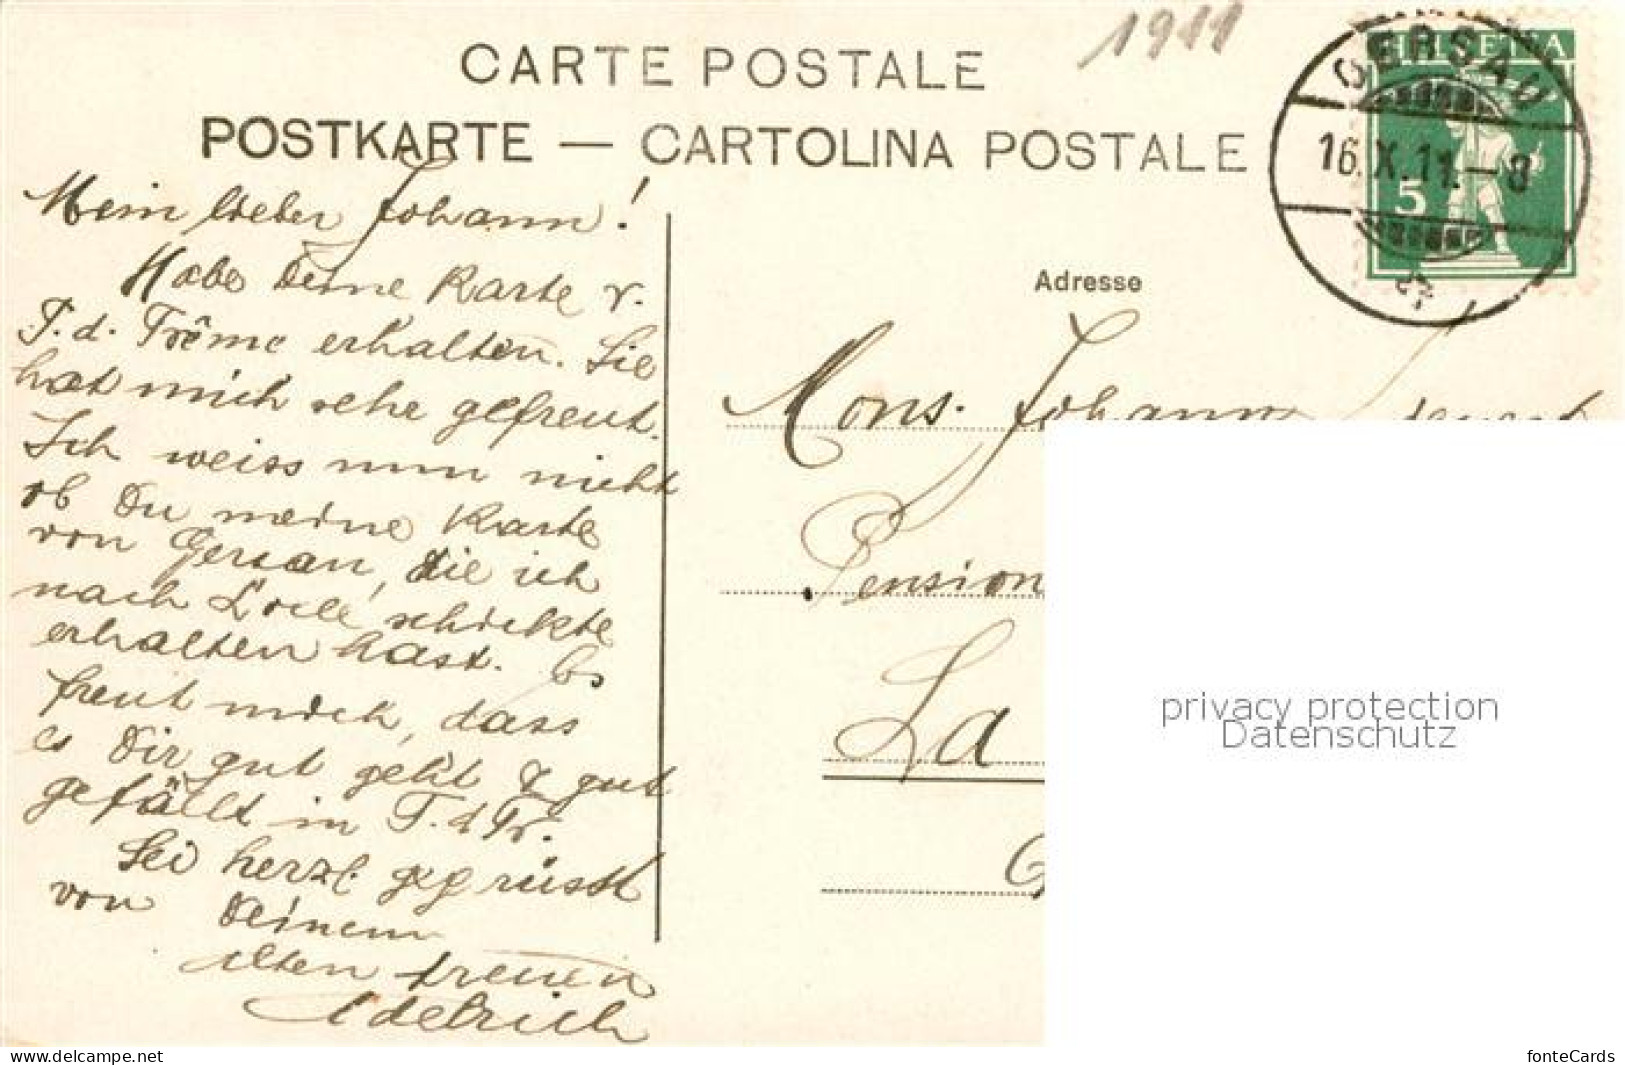 1911
CARTE POSTALE
POSTKARTE — CARTOLINA POSTALE
HELVETIA
GERSAU
16.X.11.–8
5
Mein lieber Johann!
Habe Deine Karte v.
T. d. Trême erhalten. Sie
hat mich sehr gefreut.
Ich weiss nun nicht
ob Du meine Karte
von Gersau, die ich
nach Locle schickte
erhalten hast. Es
freut mich, dass
es Dir gut geht & gut
gefällt in T. d Tr.
Sei herzl. gegrüsst
von Deinem
alten treuen
Adelrich
Adresse
Mons. Johann
Pension
La
privacy protection
Datenschutz
www.delcampe.net
fonteCards